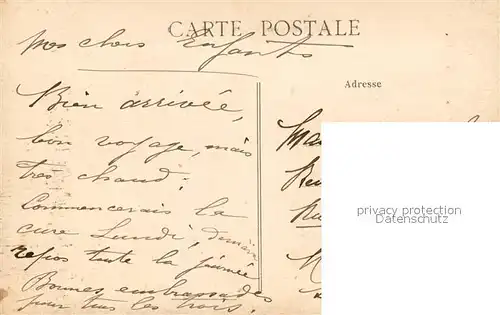 CARTE POSTALE
Mes chers Enfants
Adresse
Bien arrivée,
bon voyage, mais
très chaud;
Commencerais la
cure Lundi, demain
repos toute la journée
Bonnes embrassades
pour tous les trois.
privacy protection